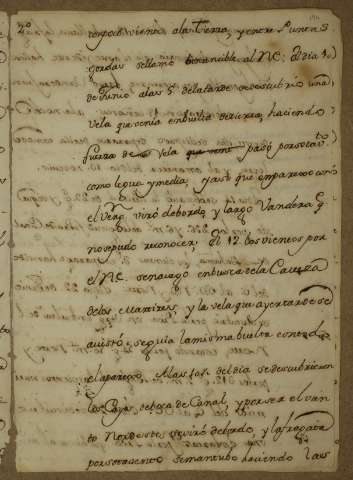 respecto viento ala Tierra, y entre Punta S
Gordas se llamo bonancible al NE: El dia 1
de Junio alas 5 dela tarde se descubrio una
Vela que venia en buelta de tierra, haciendo
fuerza de vela que veni pasó por sotavto
como legua y media, y asi que emparejo con
el Verg. viró de bordo, y largo Vandera q
no se pudo reconocer; El 12 los vientos por
el NE. se navegó en busca dela Caveza
delos Martires, y la vela que ayer tarde se
avistó, seguia la misma buelta con todo
el aparejo. Alas del dia se descubrieron
los Cayos de boca de Canal, y por ser el vien
to Nordeste se viró de bordo, y la fragata
por sotavento se mantubo haciendo las